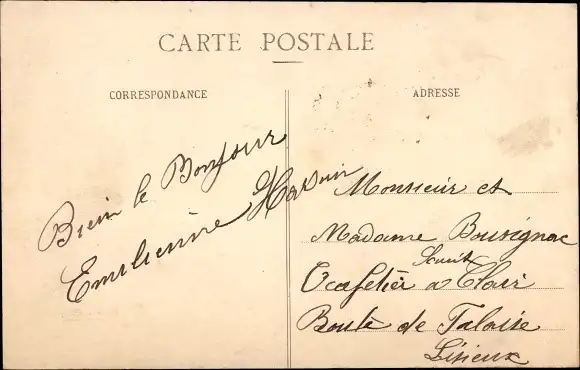 CARTE POSTALE
CORRESPONDANCE
ADRESSE
Bien le Bonjour
Emilienne
Monsieur et
Madame Bousignac
Cafetier a Clair
Route de Falaise
Lisieux